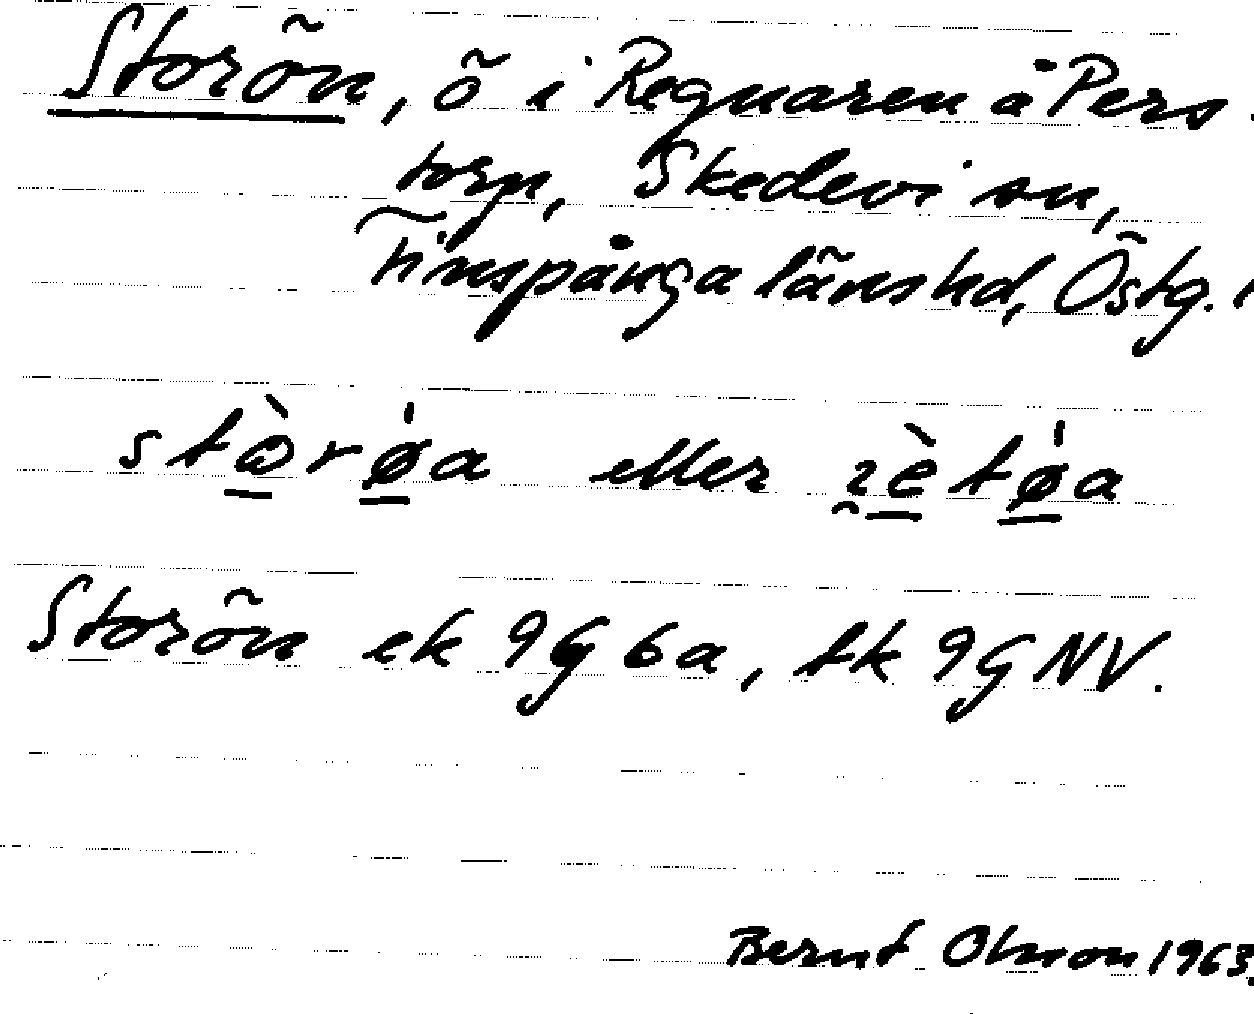 Storön, ö i Regnaren å Pers-
torp, Skedevi sn,
Finspånga länshd, Östg. l
stɷ̀rø̍a eller ɿètø̍a
Storön ek 9G6a, tk 9GNV.
Bernt Olsson 1963.